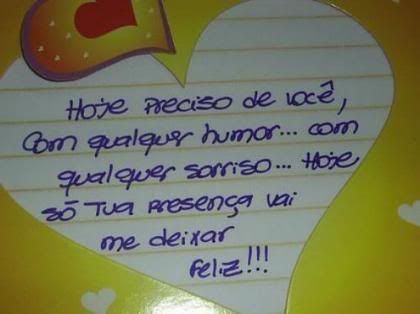 Hoje preciso de você,
Com qualquer humor... com
qualquer sorriso... Hoje
só Tua presença vai
me deixar
Feliz!!!